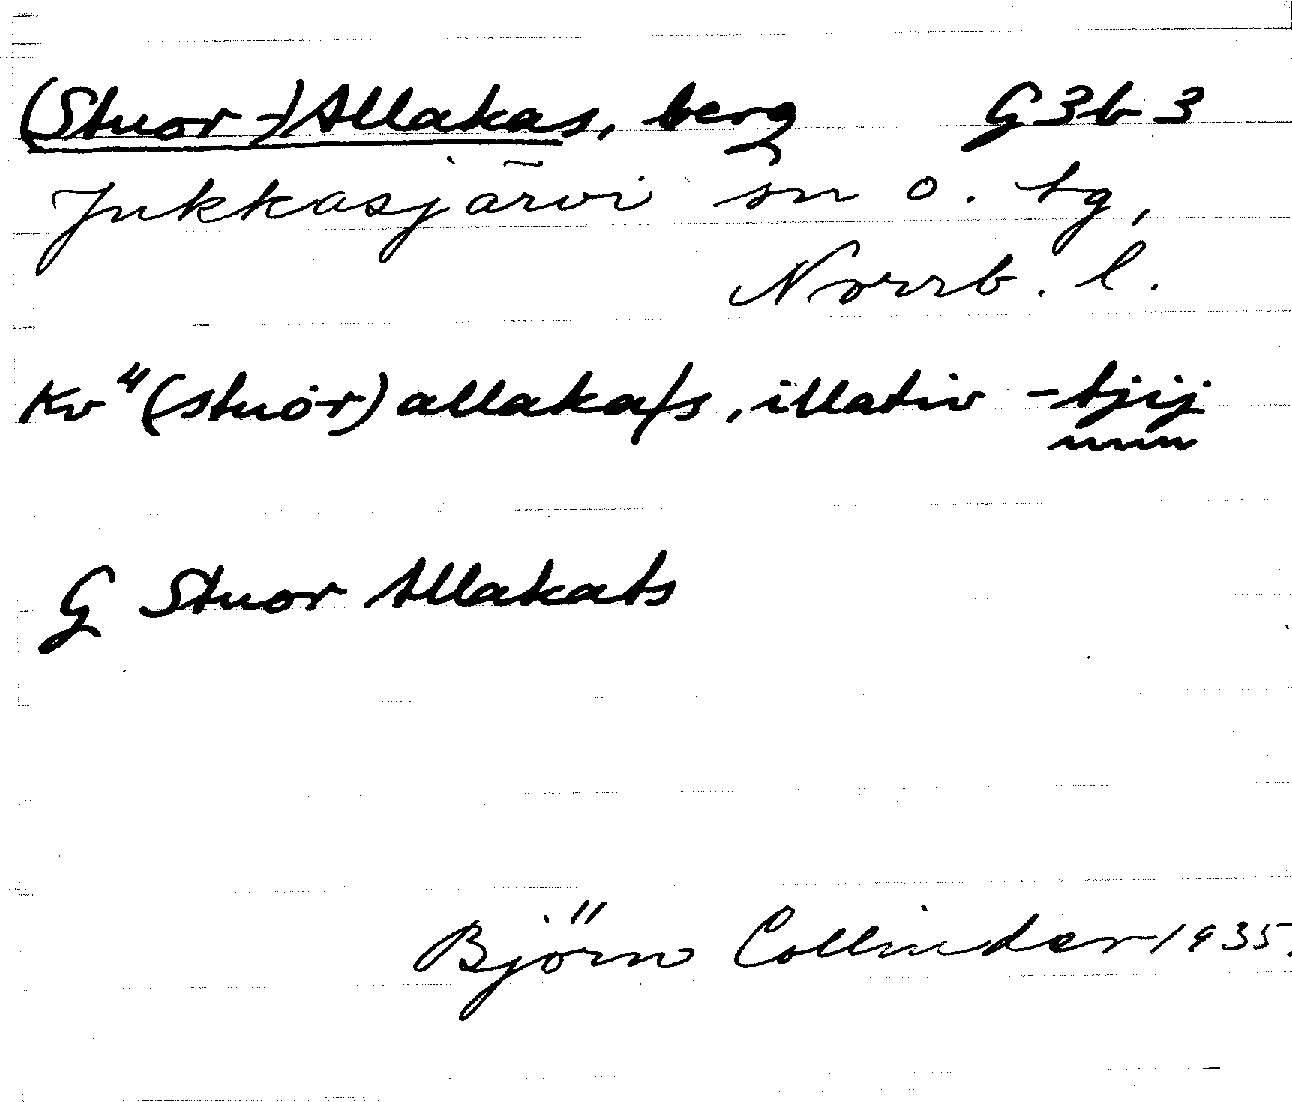 (Stuor-)Allakas, berg G3b3
Jukkasjärvi sn o. tg,
Norrb. l.
Kv" (stuor) allakaſs, illativ -tjij
G Stuor Allakats
Björn Collinder 1935.